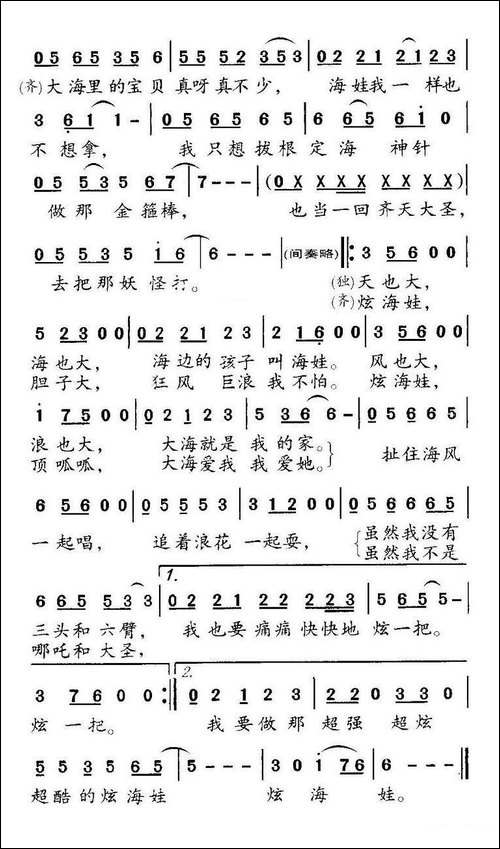 0 5 6 5 3 5 6 | 5 5 5 2 3 5 3 | 0 2 2 1 2 1 2 3
(齐)大海里的宝贝 真呀真不少， 海娃我一样也
3 6 1 1 - | 0 5 6 5 6 5 | 6 6 5 6 1 0 |
不想拿， 我只想拔根 定海 神针
0 5 5 3 5 6 7 | 7 - - - | (0 X X X X X X X)
做那 金箍棒， 也当一回齐天大圣，
0 5 5 3 5 1 6 | 6 - - - | (间奏略) ‖: 3 5 6 0 0
去把那妖怪打。 (独)天也大，
(齐)炫海娃，
5 2 3 0 0 | 0 2 2 1 2 3 | 2 1 6 0 0 | 3 5 6 0 0 |
海也大， 海边的孩子 叫海娃。 风也大，
胆子大， 狂风 巨浪 我不怕。 炫海娃，
1 7 5 0 0 | 0 2 1 2 3 | 5 3 6 6 - | 0 5 6 6 5
浪也大， 大海就是 我的家。 扯住海风
顶呱呱， 大海爱我 我爱她。
6 5 6 0 0 | 0 5 5 5 3 | 3 1 2 0 0 | 0 5 6 6 6 5
一起唱， 追着浪花 一起耍， 虽然我没有
虽然我不是
1.
6 6 5 5 3 3 | 0 2 2 1 2 2 2 2 3 | 5 6 5 5 - |
三头和六臂， 我也要痛痛快快地 炫一把。
哪吒和大圣，
2.
3 7 6 0 0 :‖ 0 2 1 2 3 | 2 2 0 3 3 0
炫一把。 我要做那 超强 超炫
5 5 3 5 6 5 | 5 - - - | 3 0 1 7 6 | 6 - - - ‖
超酷的炫海娃 炫 海 娃。